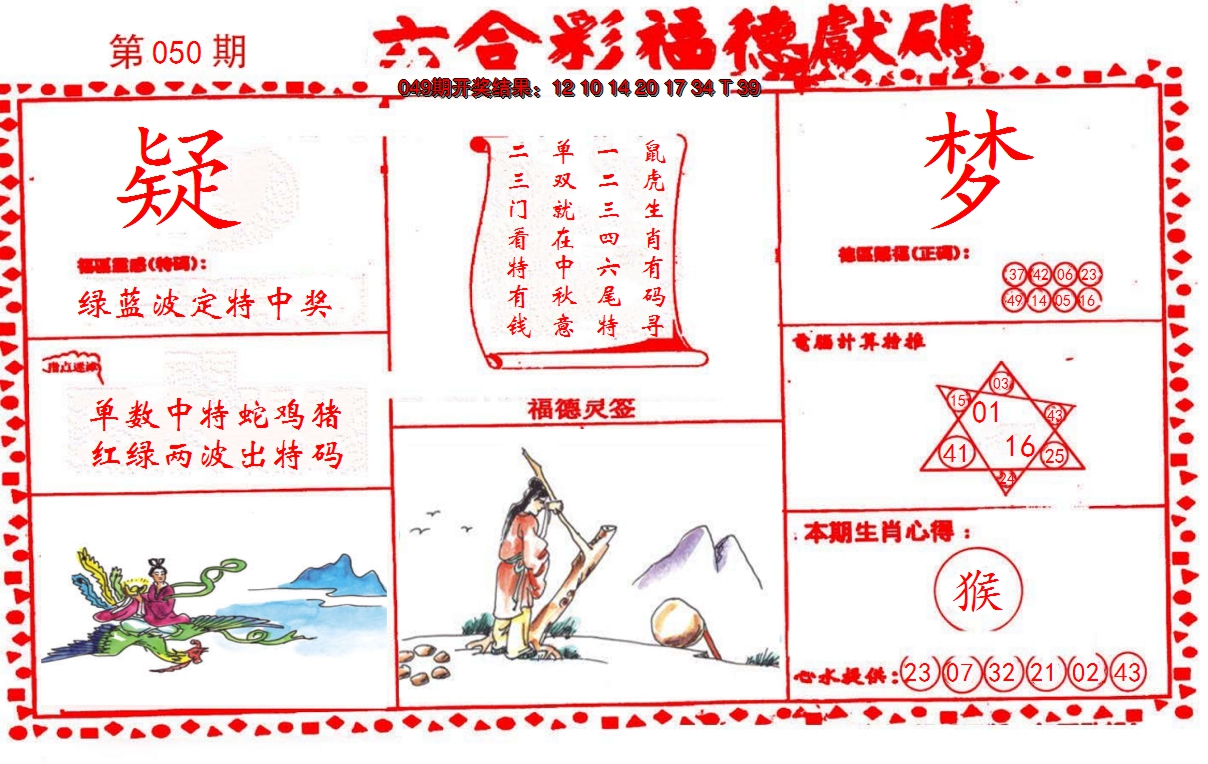 第 050 期
六合彩福德獻碼
049期开奖结果：12 10 14 20 17 34 T 39
疑
绿蓝波定特中奖
单数中特蛇鸡猪
红绿两波出特码
鼠虎生肖有码寻
一二三四六尾特
单双就在中秋意
二三门看特有钱
福德灵签
梦
37 42 06 23
49 14 05 16
電腦计算
03
15 01 43
41 16 25
24
本期生肖心得：
猴
心水提供：23 07 32 21 02 43